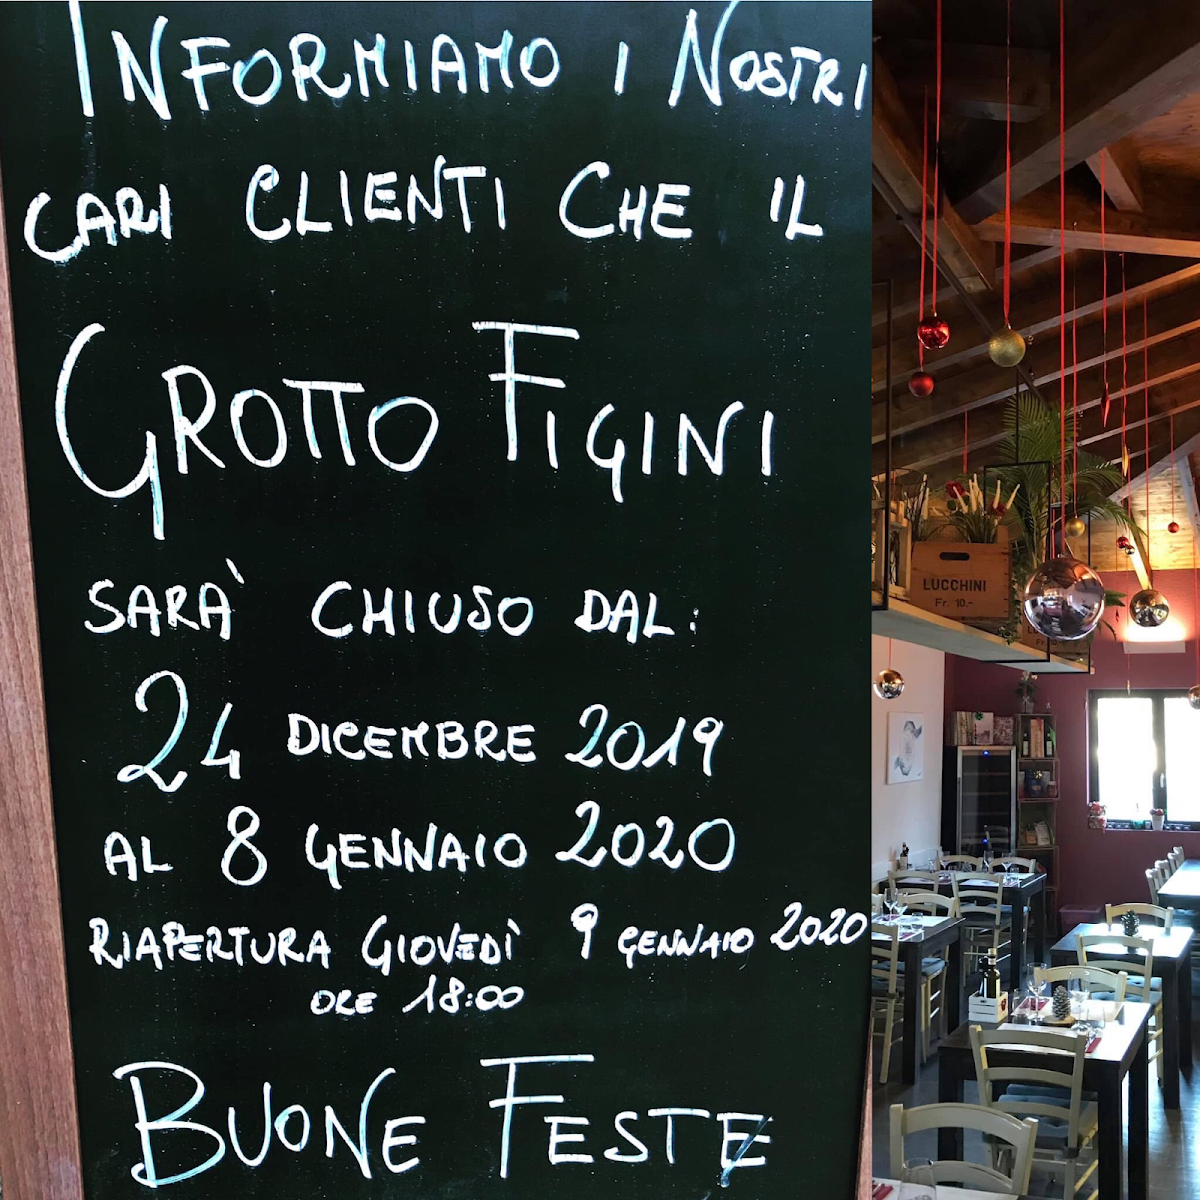 INFORMIAMO I NOSTRI
CARI CLIENTI CHE IL
GROTTO FIGINI
SARÀ CHIUSO DAL:
24 DICEMBRE 2019
AL 8 GENNAIO 2020
RIAPERTURA GIOVEDÌ 9 GENNAIO 2020
ORE 18:00
BUONE FESTE
LUCCHINI
Fr. 10.-